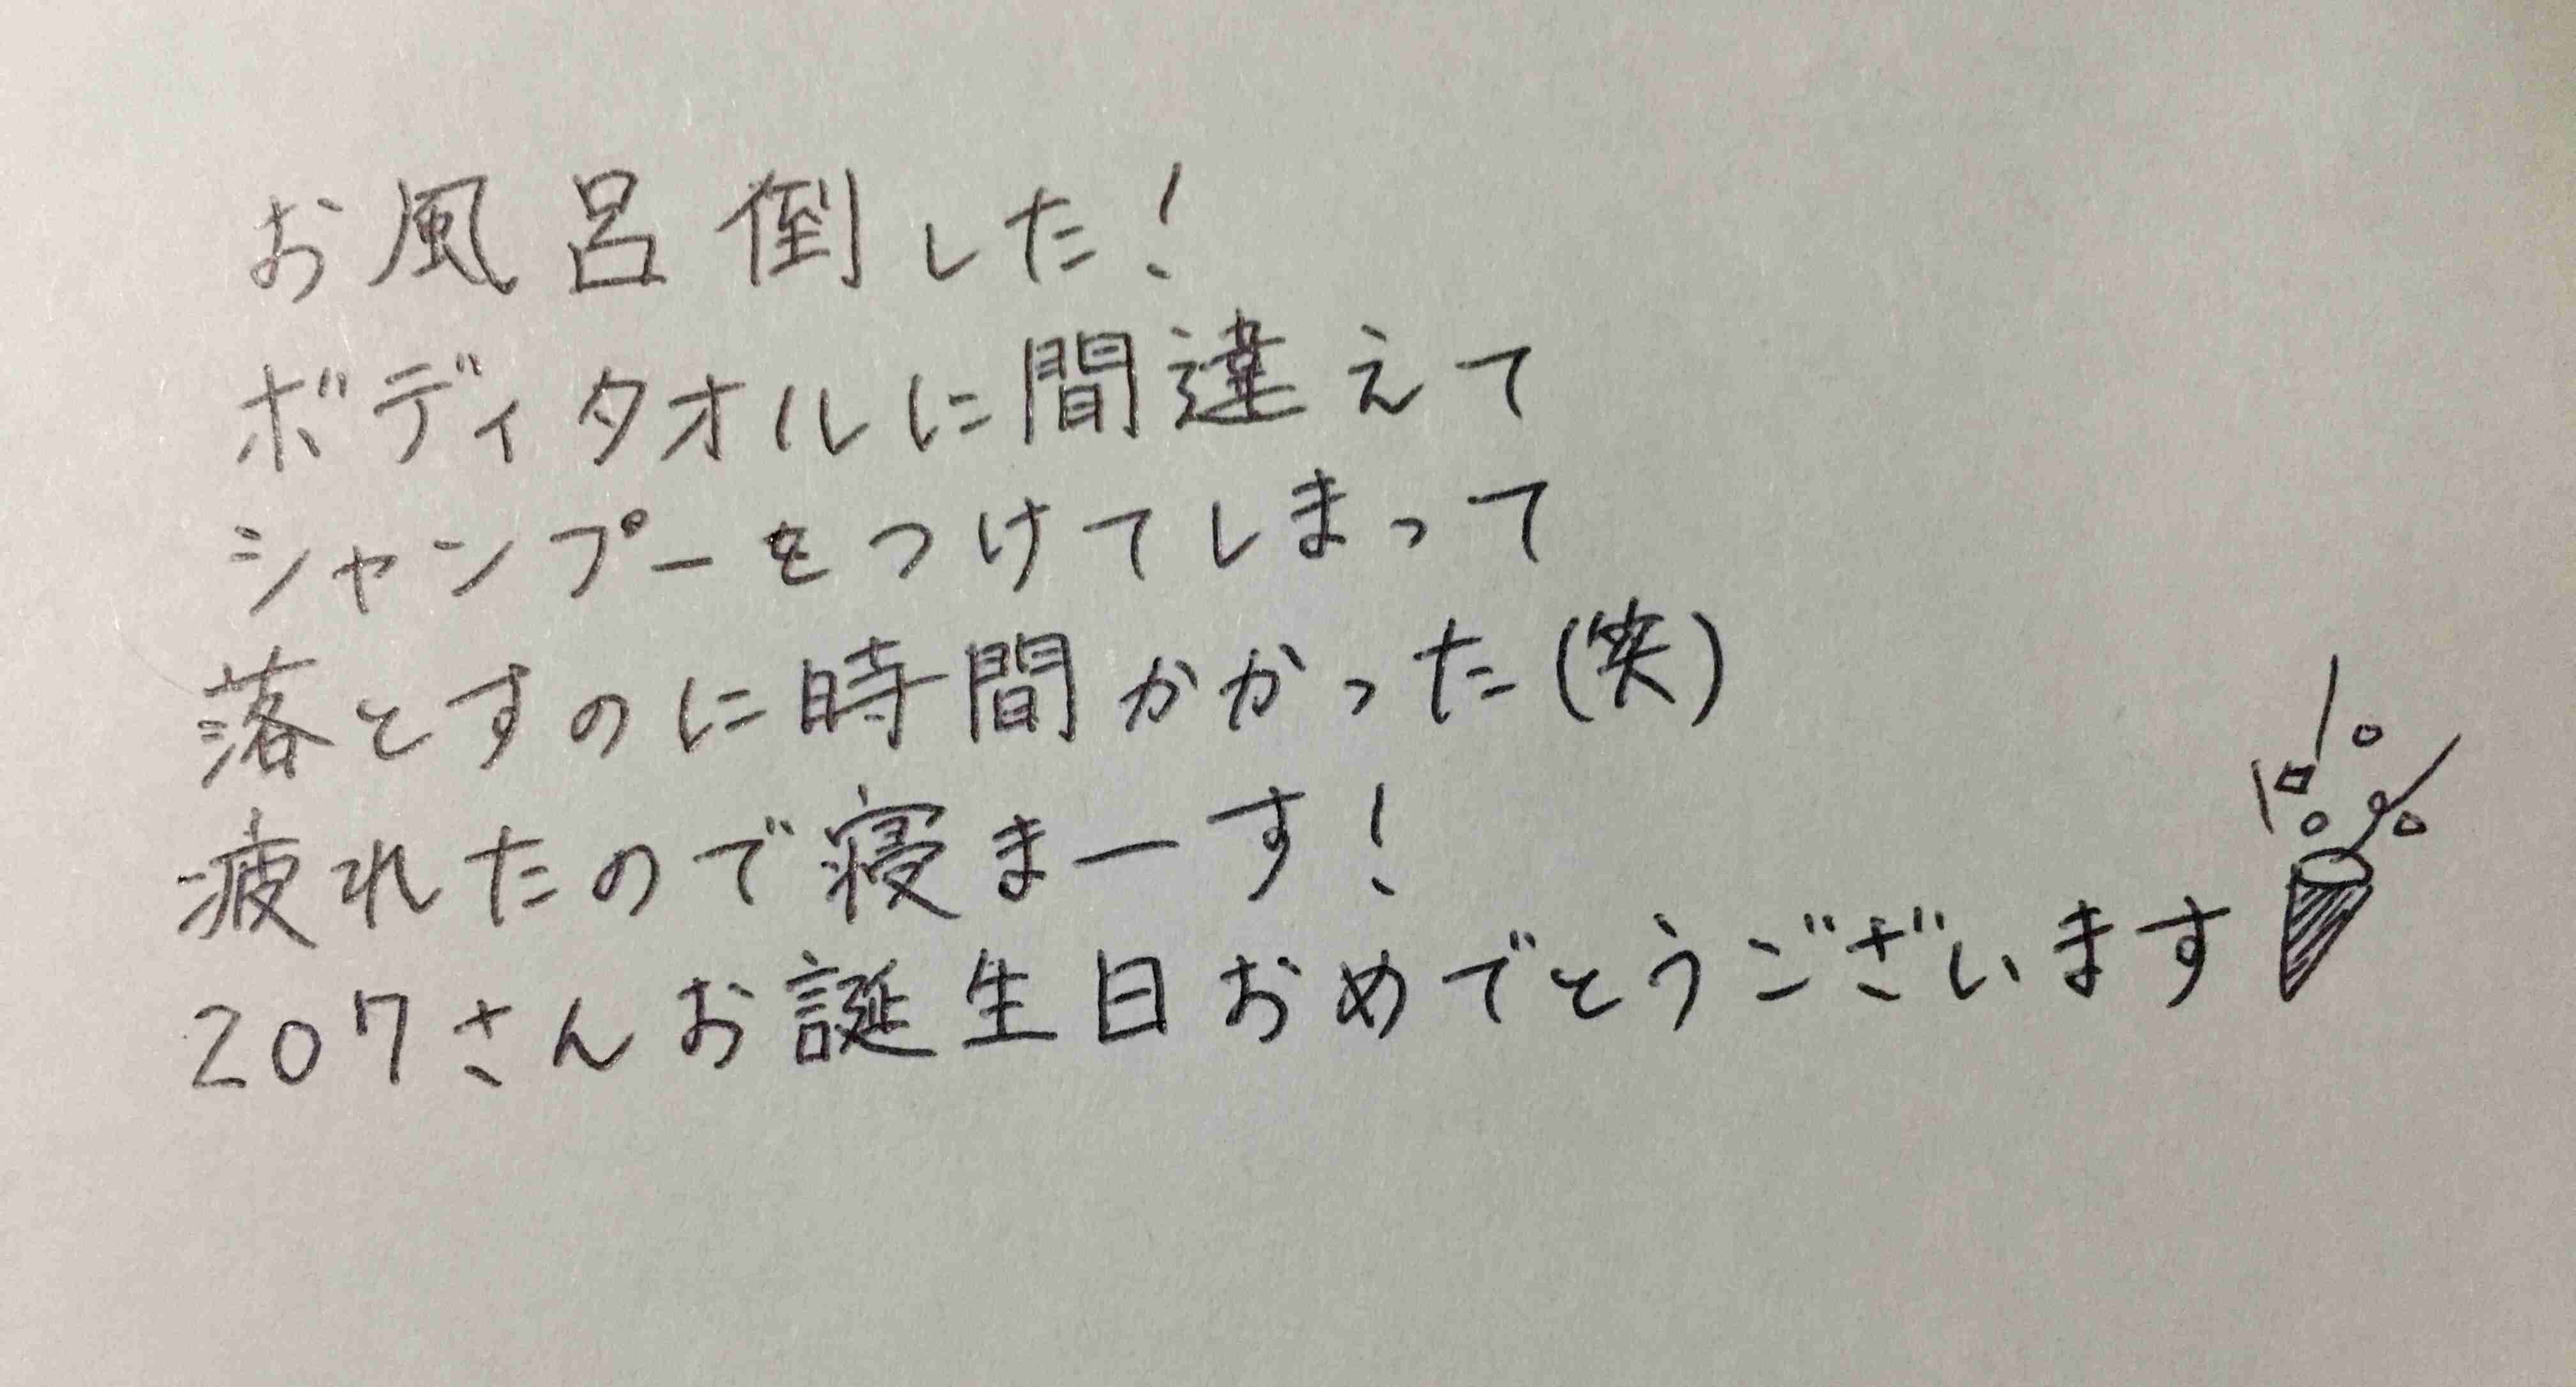 お風呂倒した!
ボディタオルに間違えて
シャンプーをつけてしまって
落とすのに時間かかった(笑)
疲れたので寝まーす!
207さんお誕生日おめでとうございます